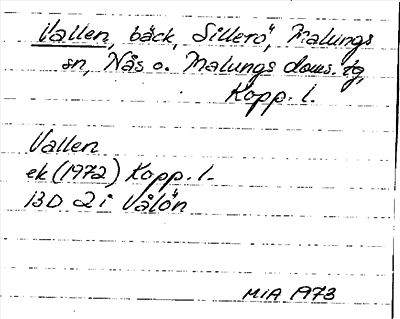 Vallen, bäck, Sillerö, Malungs
sn, Nås o. Malungs doms. tg,
Kopp. l.
Vallen
ek (1972) Kopp. l.
13D 2i Vålön
MIA 1973